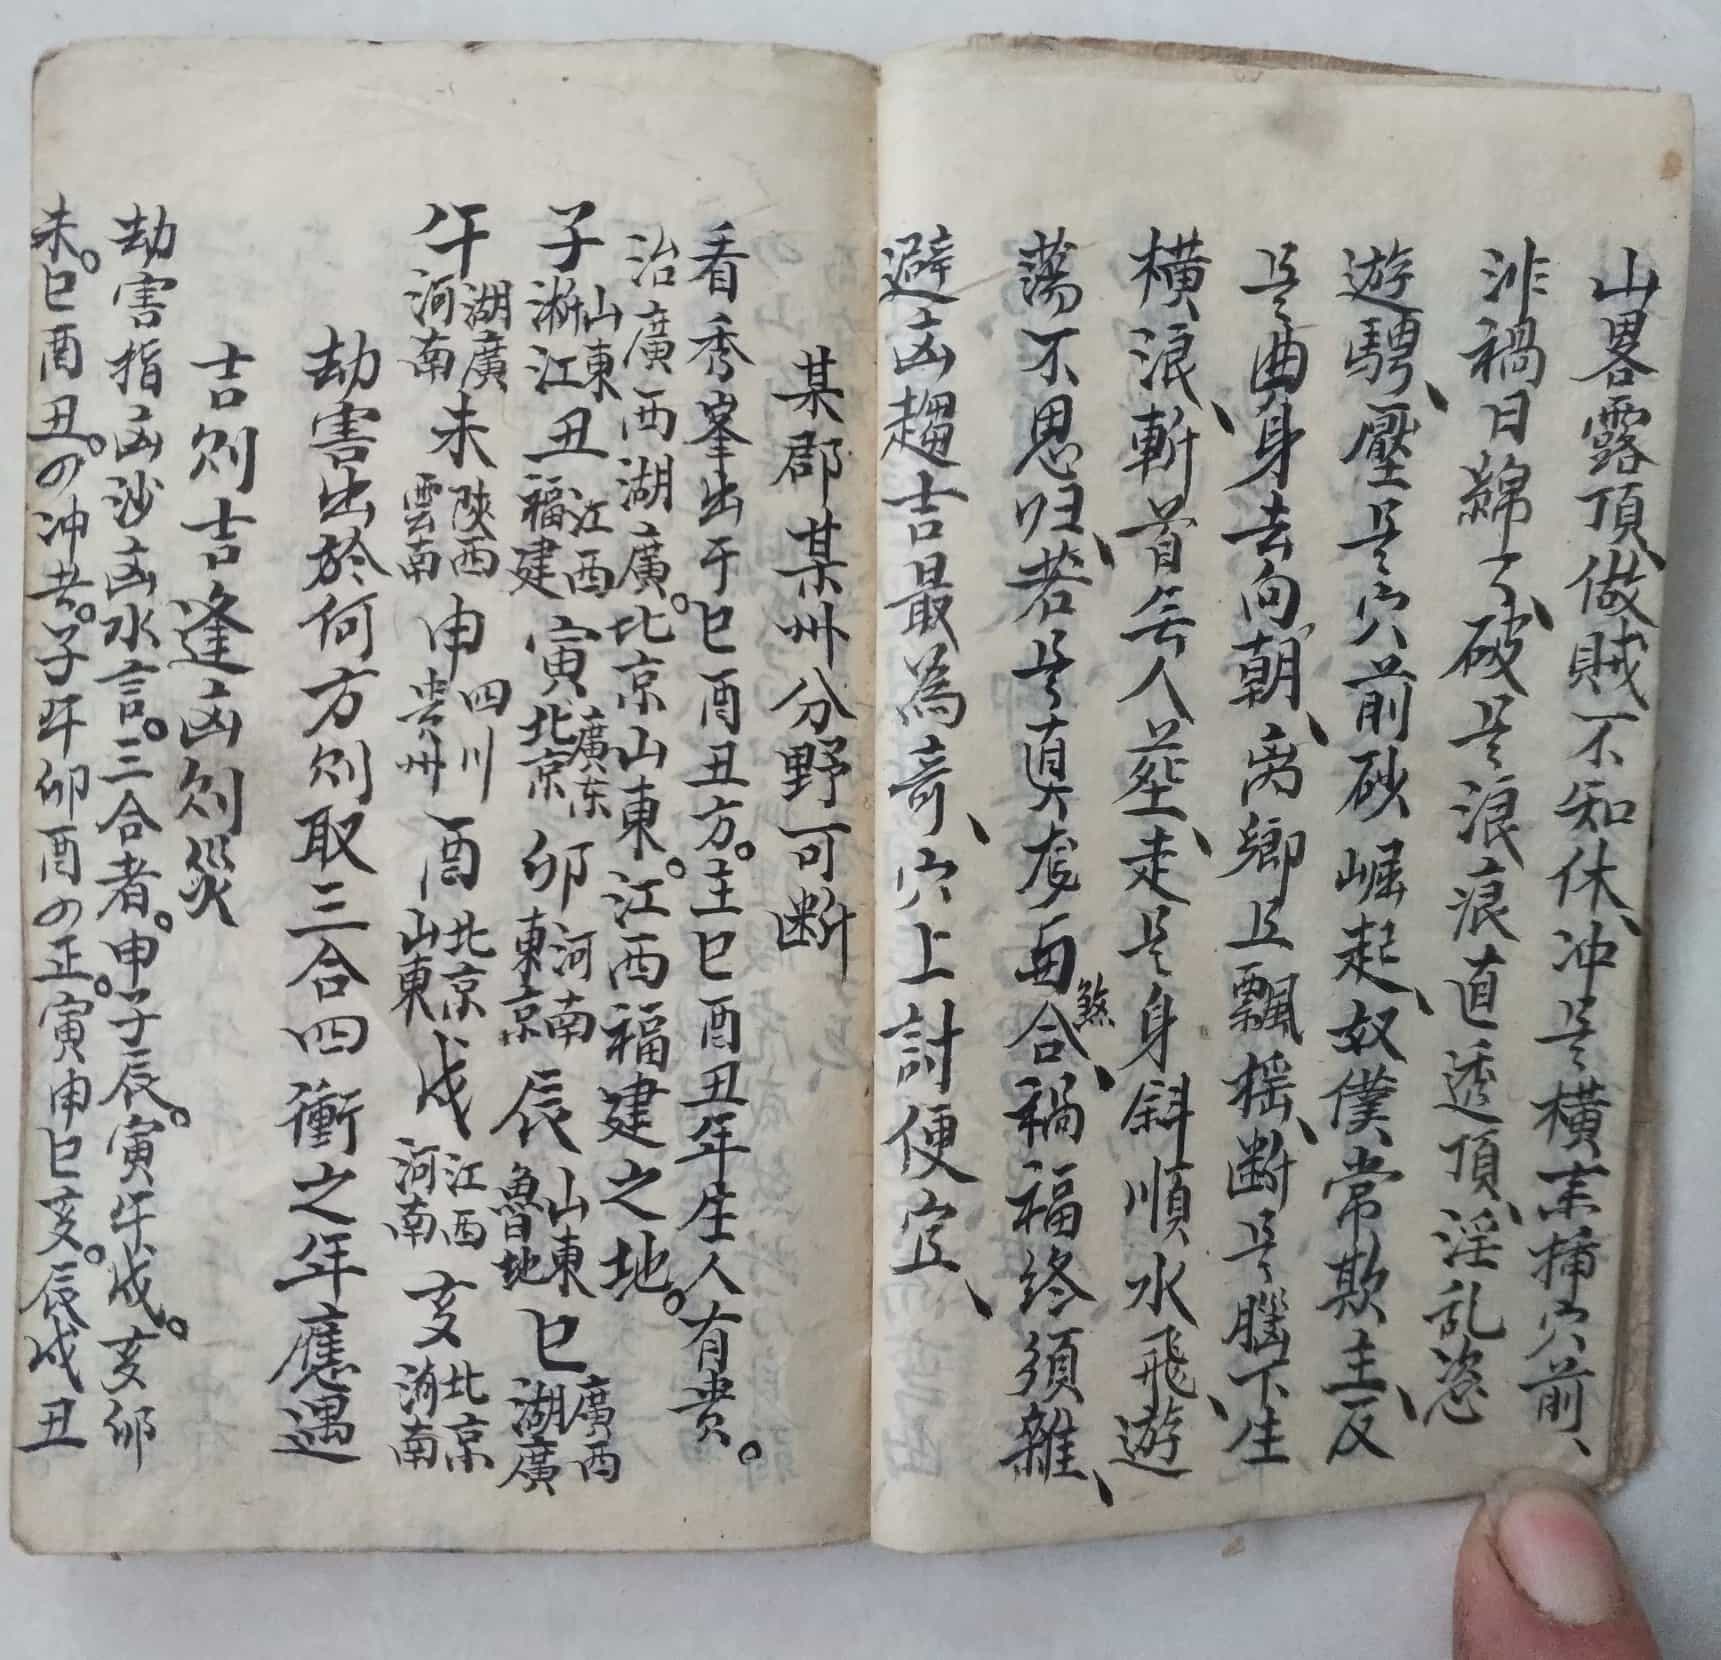 山畧露頂、做賊不知休、冲是橫來揷穴前、
泄禍日綿了、破是浪痕直透頂、淫乱恣
遊騁、壓是穴前砂崛起、奴僕常欺主、反
是曲身去向朝、离鄉且飄搖、断是腦下生
橫浪、斬首無人塟、走是身斜順水飛、遊
蕩不思归、若是真處再合煞、禍福終須雜、
避凶趨吉最為竒、穴上討便宜、
某郡某州分野可断
看秀峯出于巳酉丑方。主巳酉丑年生人有貴。
治廣西湖廣。北京山東。江西福建之地。
子山東淅江丑江西福建寅廣东北京卯河南東京辰山東魯地巳廣西湖廣
午湖廣河南未陝西雲南申四川貴州酉北京山東戌江西河南亥北京湳南
劫害出於何方則取三合四衝之年應遇
吉則吉逢凶則災
劫害指凶沙凶水言。三合者。申子辰。寅午戌。亥卯
未。巳酉丑。の冲者。子午卯酉の正。寅申巳亥。辰戌丑